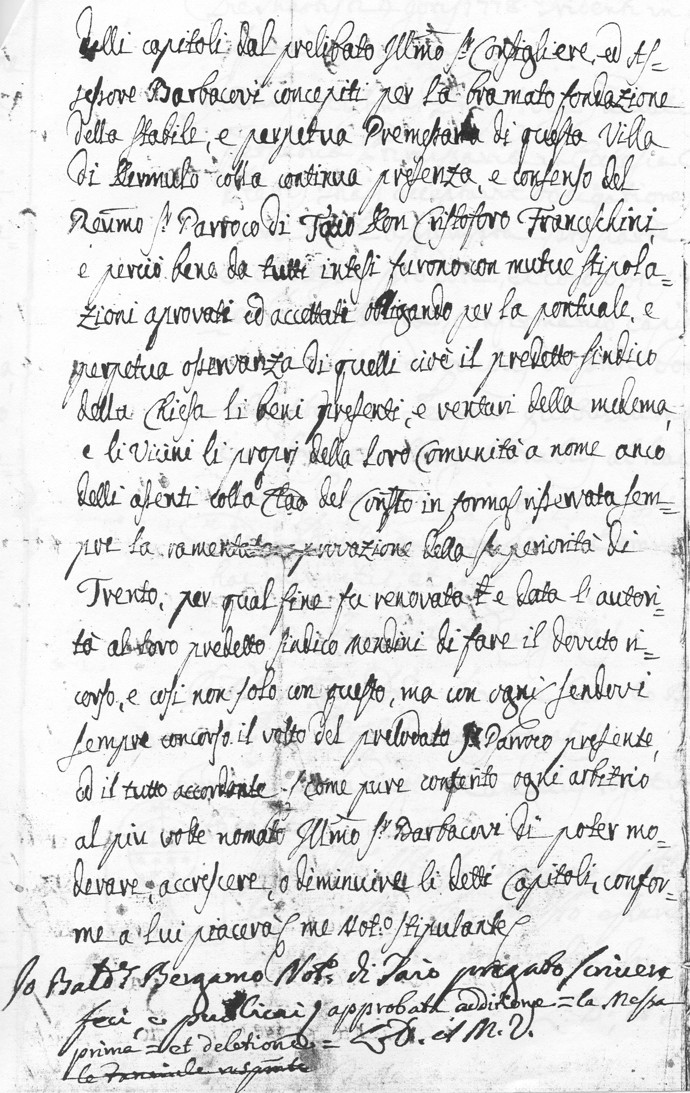 delli capitoli dal prelibato Illmo Sr Consigliere, ed As=
sessore Barbacovi concepiti per la bramato fondazione
della stabile, e perpetua Premessaria di questa Villa
di Dermulo colla continua presenza, e consenso del
Revmo Sr Parroco di Taio Don Cristoforo Franceschini,
e perciò bene da tutti intesi furono con mutue stipola=
zioni aprovati ed accettati obligando per la pontuale, e
perpetua osservanza di quelli cioè il predetto sindico
della Chiesa li beni presenti, e venturi della medema,
e li Vicini li proprj della loro Comunità a nome anco
delli assenti colla del in forma riservata sem=
pre la provazione della Superiorità di
Trento, per qual fine fu renovata e data l'autori=
tà al loro predetto sindico Mendini di fare il dovuto ri=
corso, e cosi non solo con questo, ma con ogni sendovi
sempre concorso il volto del prelodato Sr Parroco presente,
ed il tutto accordante, come pure conferito ogni arbitrio
al piu volte nomato Illmo Sr Barbacovi di poter mo=
derare, accrescere, o diminuire li detti Capitoli, confor=
me a lui piacerà me Noto stipulante
Io Baldr Bergamo Notr di Taio pregato scriver
feci e publicai approbata additione = la Messa
prima = et deletione = et M. V.
le